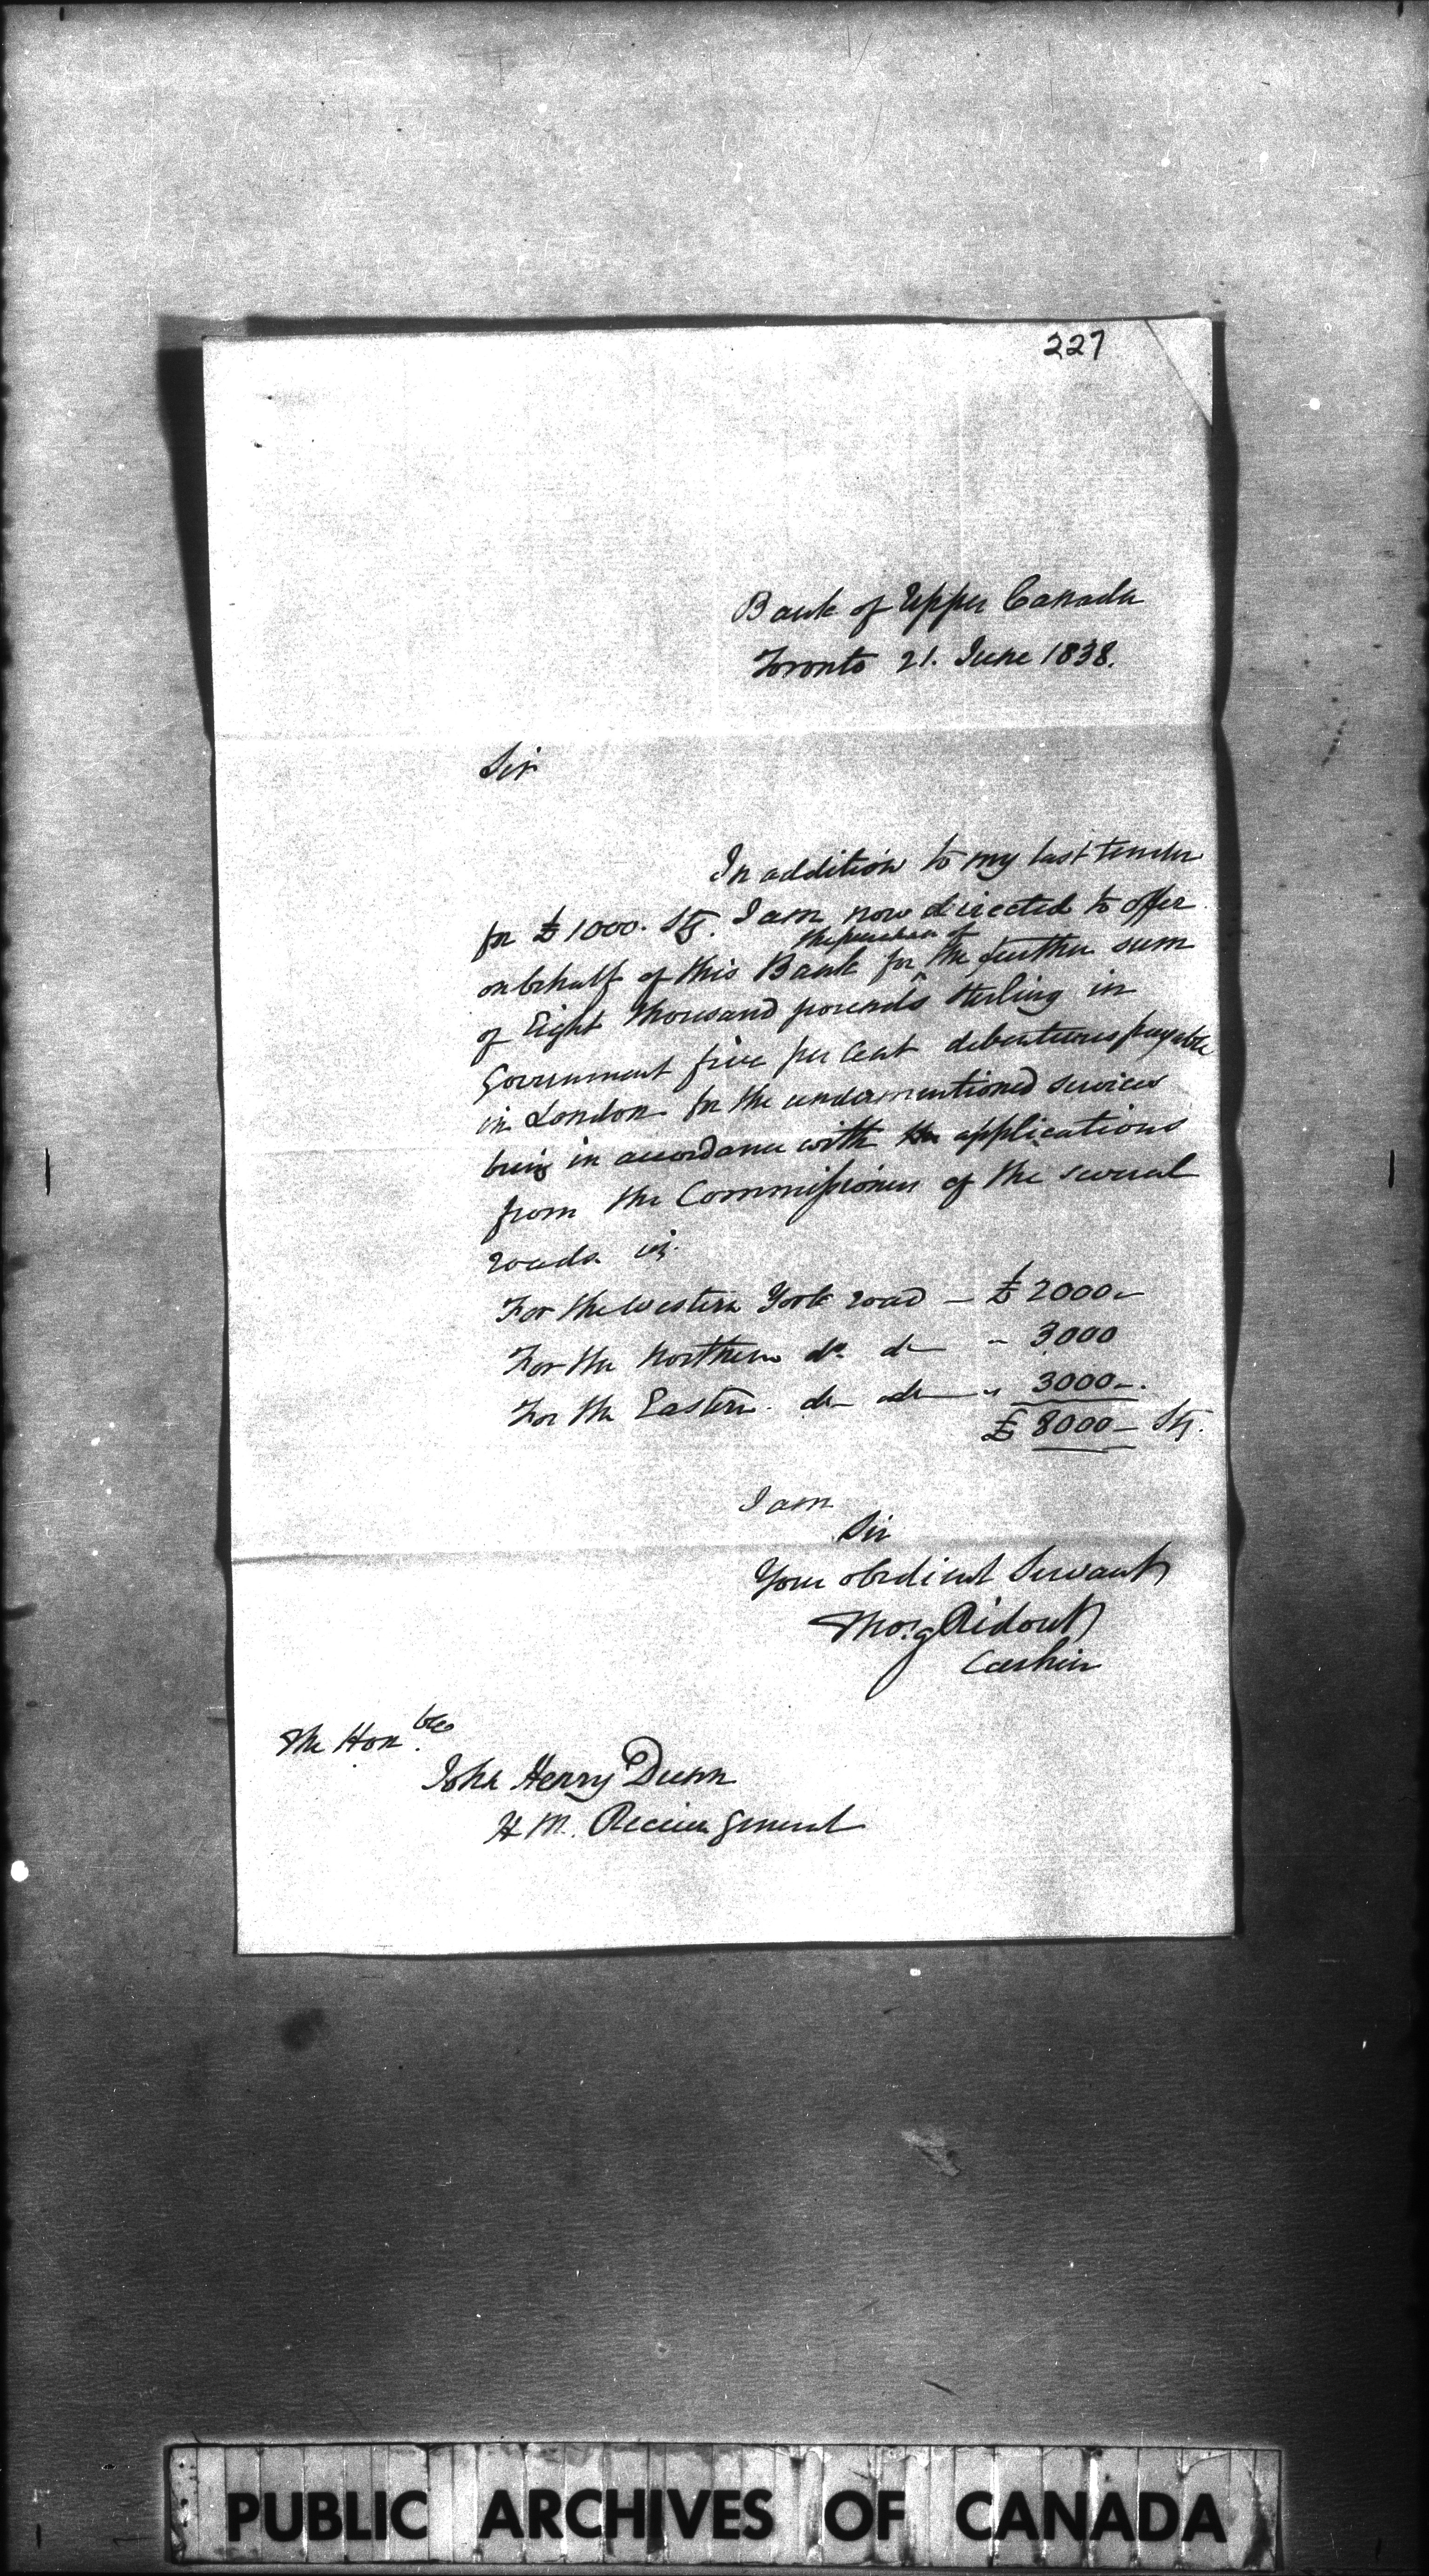 227
Bank of Upper Canada
Toronto 21. June 1838.
Sir
In addition to my last tender
for £1000. Stg. I am now directed to offer
the purchase of
on behalf of this Bank for the further sum
of Eight thousand pounds Sterling in
Government five per Cent debentures payable
in London for the undermentioned services
being in accordance with the applications
from the Commissioners of the several
roads viz.
For the Western York road — £2000—
For the Northern do do " 3000
For the Eastern. do do " 3000—.
£8000— Stg.
I am
Sir
Your obedient Servant
Thos. G Ridout
Cashier
The Honble.
John Henry Dunn
H M. Receiver General
PUBLIC ARCHIVES OF CANADA